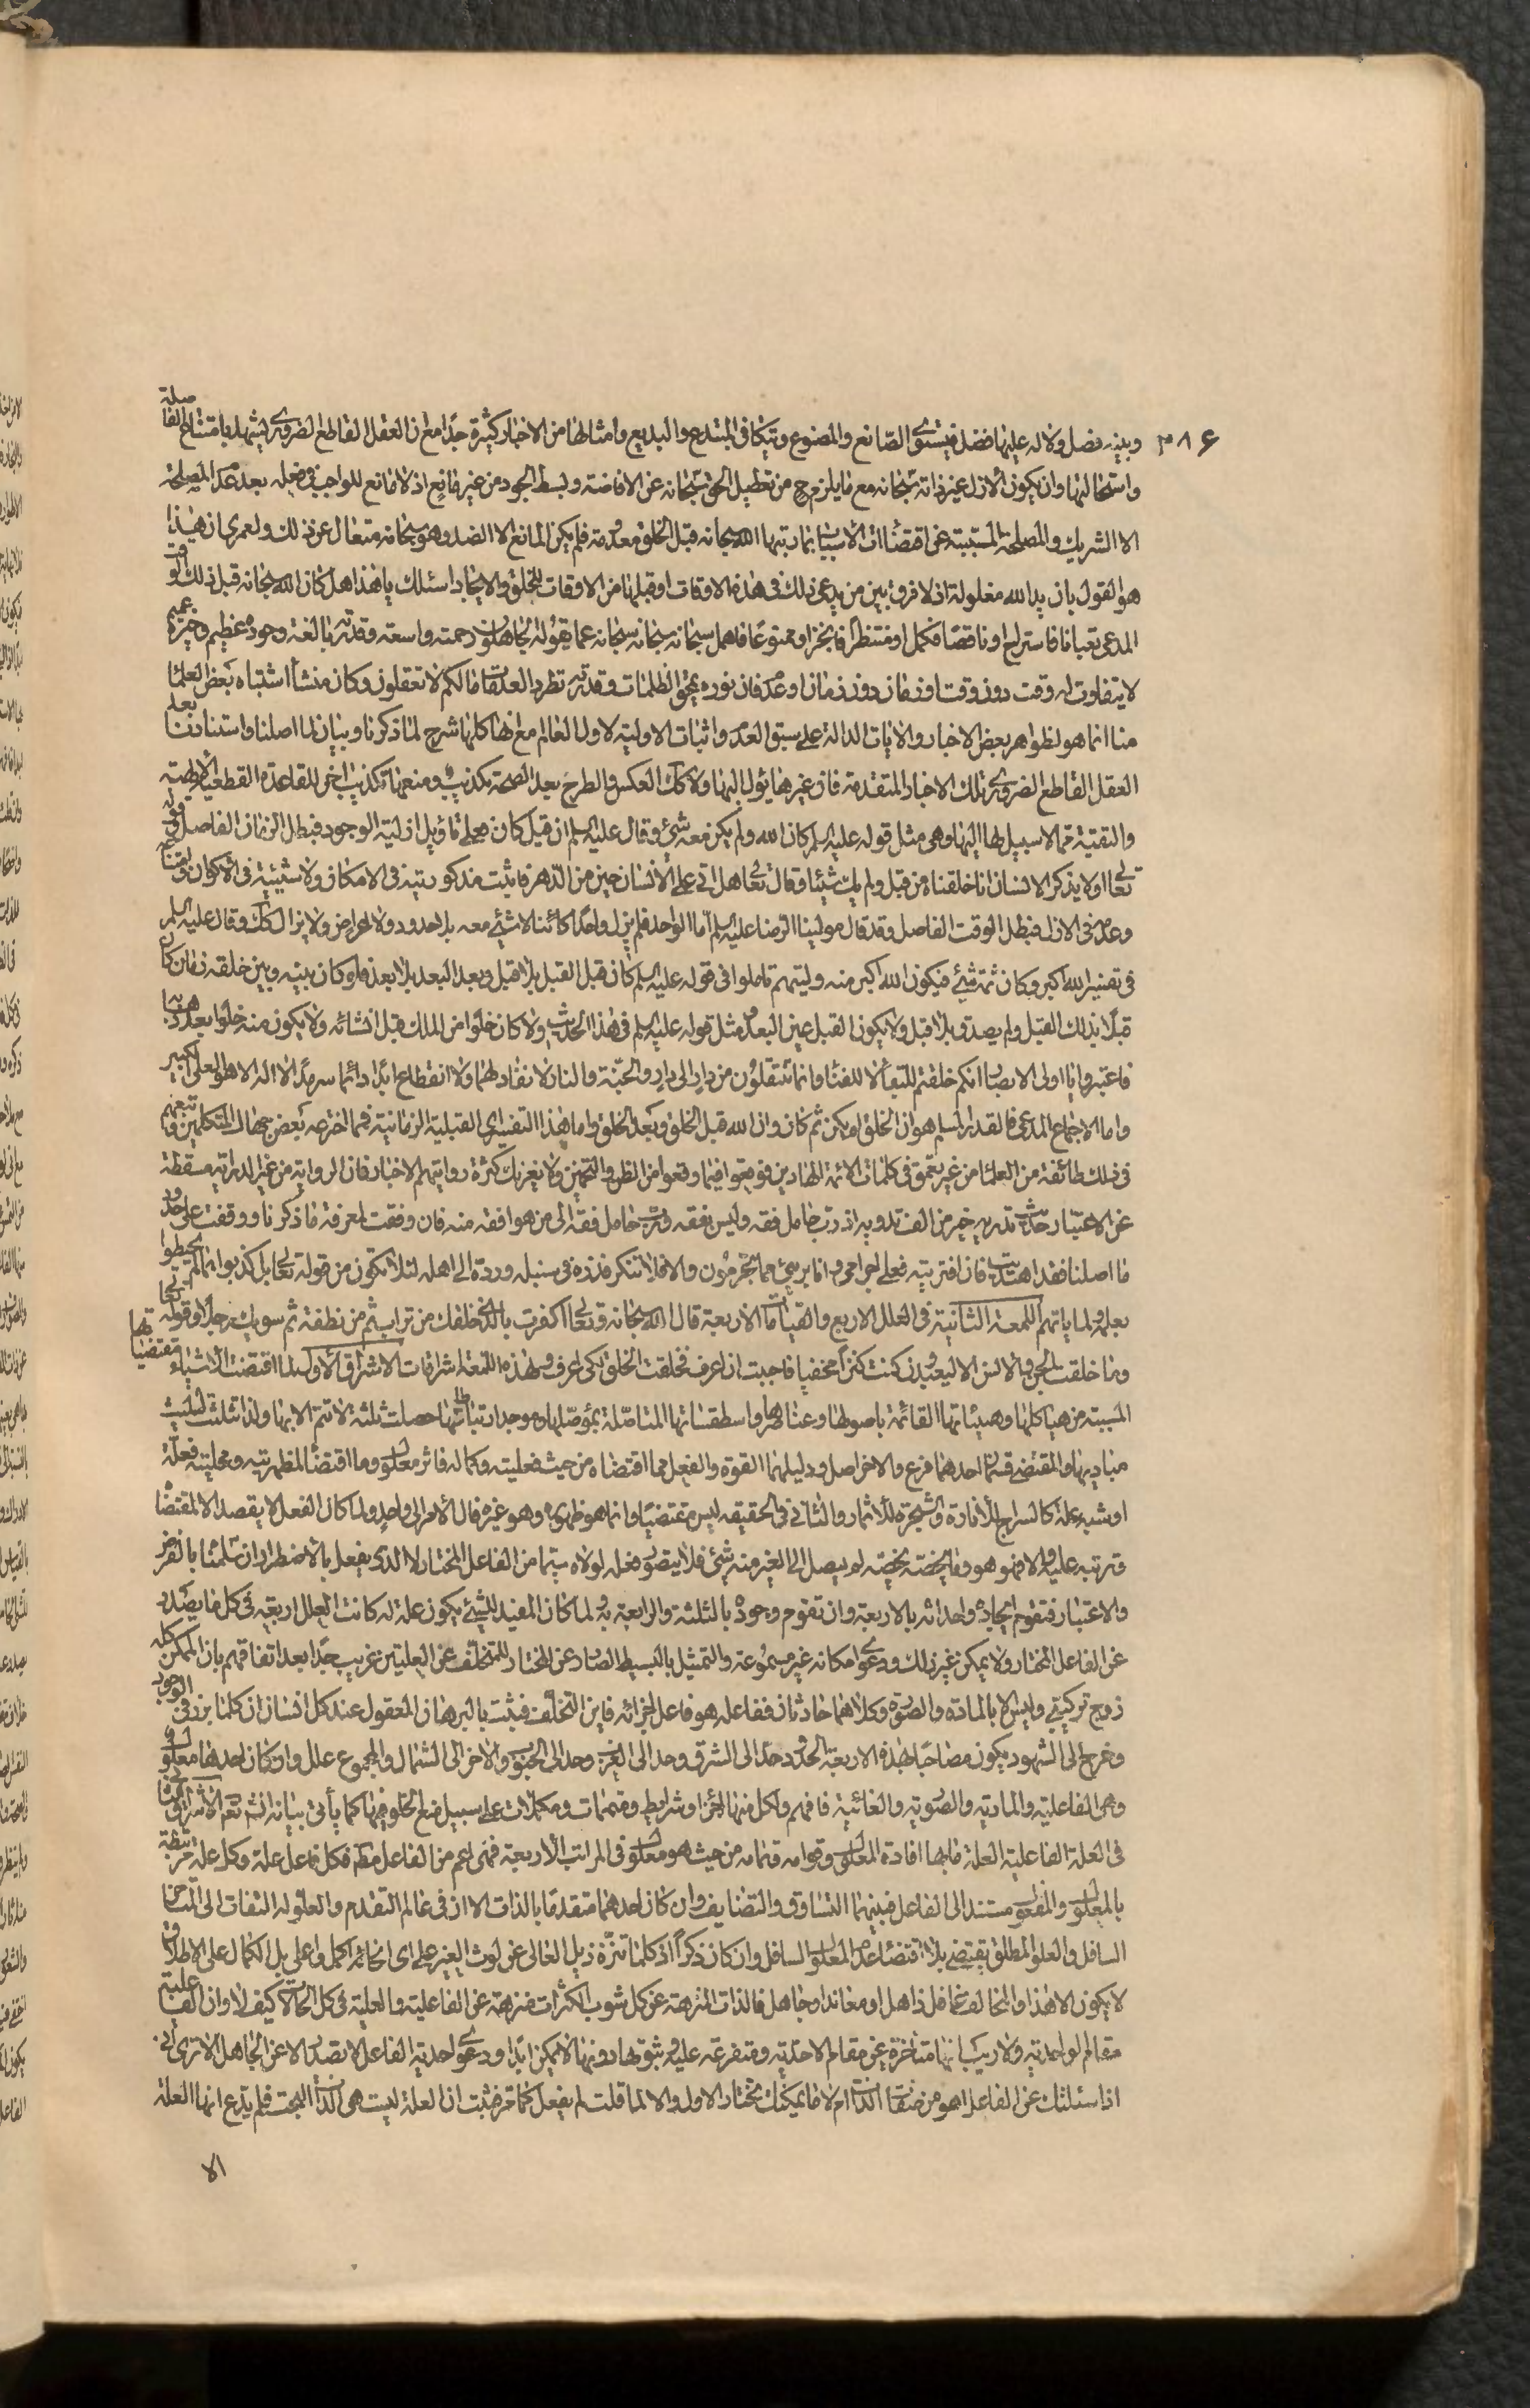 وبينه فصل ولا له عليها فضل فيستوى الصانع والمصنوع ويتكافى المبتدع والبديع وامثالها من الاخبار كثيرة جدا مع ان العقل القاطع الضرورى يشهد بامتناع الفاصلة
واستحالتها وان يكون الازل غير ذاته سبحانه مع ما يلزم ح من تعطيل الحق سبحانه عن الافاضة وبسط الجود من غير مانع اذ لا مانع للواجب فى فعله بعد عدم المصلحة
الا الشريك والمصلحة المسببة عن اقتضاءات الاسباب انما ربتها الله سبحانه قبل الخلق معدومة فلم يكن المانع الا الضد وهو سبحانه متعال عن ذلك ولعمرى ان هذا
هو القول بان يد الله مغلولة اذ لا فرق بين من يدعى ذلك فى هذه الاوقات او قبلها من الاوقات للخلق والايجاد اسئلك يا هذا هل كان الله سبحانه قبل ذلك الوقت
المدعى تعبانا فاستراح او ناقصا فكمل او منتظرا فانجز او ممنوعا فاهمل سبحانه سبحانه سبحانه عما يقوله الجاهلون رحمته واسعة وقدرته بالغة وجوده عظيم وخيره عميم
لا يتفاوت له وقت دون وقت او زمان دون زمان او عدم فان نوره يمحق الظلمات وقدرته تطرد العدمات ما لكم لا تعقلون وكان منشأ اشتباه بعض العلماء
منا انما هو لظواهر بعض الاخبار والايات الدالة على سبق العدم واثبات الاولية لاول العالم مع انها كلها شرح لما ذكرنا وبيان لما اصلنا واستنادنا بعد
العقل القاطع الضرورى تلك الاخبار المتقدمة فان غيرها يئول اليها ولا كك العكس والطرح بعد الصحة تكذيب ومنعها تكذيب اخر للقاعدة القطعية
والتقية مما لا سبيل لها اليها وهى مثل قوله عليه السلم كان الله ولم يكن معه شئ وقال عليه السلم ان قيل كان فعلى تاويل ازلية الوجود فبطل الزمان الفاصل وقوله
تعالى اولا يذكر الانسان انا خلقناه من قبل ولم يك شيئا وقال تعالى هل اتى على الانسان حين من الدهر فاثبت مذكوريته فى الامكان ولا شيئيته فى الاكوان وامتناعه
وعدمه فى الازل فبطل الوقت الفاصل وقد قال مولينا الرضا عليه السلم اما الواحد فلم يزل واحدا كائنا لا شئ معه بلا حدود ولا اعراض ولا يزال كك وقال عليه السلم
فى تفسير الله اكبر وكان ثمة شئ فيكون الله اكبر منه وليتهم تاملوا فى قوله عليه السلم كان قبل القبل بلا قبل وبعد البعد بلا بعد فلو كان بينه وبين خلقه زمان كان
قبلا بذلك القبل ولم يصدق بلا قبل ولا يكون القبل عين البعد مثل قوله عليه السلم فى هذا الحديث ولا كان خلوا من الملك قبل انشائه ولا يكون منه خلوا بعد ذهابه
فاعتبروا يا اولى الابصار انكم خلقتم للبقاء لا للفناء وانما تنتقلون من دار الى دار والجنة والنار لا نفاد لهما ولا انقطاع ابدا دائما سرمدا لا اله الا هو العلى الكبير
واما الاجماع المدعى فالقدر المسلم هو ان الخلق لم يكن ثم كان وان الله قبل الخلق وبعد الخلق واما هذا التفسير اى القبلية الزمانية فمما اخترعه بعض جهال المتكلمين وتبعهم
فى ذلك طائفة من العلماء من غير تعمق فى كلمات الائمة الهادين فوقعوا فيما وقعوا من الظن والتخمين ولا يغرنك كثرة روايتهم الاخبار فان الرواية من غير الدراية مسقطة
عن الاعتبار حديث تدريه خير من الف ترويه اذ رب حامل فقه وليس بفقيه ورب حامل فقه الى من هو افقه منه فان وفقت لمعرفة ما ذكرنا ووقفت على حدود
ما اصلنا فقد اهتديت فان افتريته فعلى اجرامى وانا برئ مما تجرمون والا فلا تنكر فذره فى سنبله ورده الى اهله لئلا تكون من قوله تعالى بل كذبوا بما لم يحيطوا
بعلمه ولما ياتهم اللمعة الثانية فى العلل الاربع والقيامات الاربعة قال الله سبحانه وتعالى اكفرت بالذى خلقك من تراب ثم من نطفة ثم سويك رجلا وقوله تعالى
وما خلقت الجن والانس الا ليعبدون كنت كنزا مخفيا فاحببت ان اعرف فخلقت الخلق لكى اعرف ولهذه اللمعة اشراقات الاشراق الاول لما اقتضت الاشياء مقتضياتها
المسببة من هياكلها وهيئاتها القائمة باصولها وعناصرها واسطقساتها المتاصلة بمؤصلها وموجد ارتباطاتها حصلت ثلثة لا تتم الا بها ولذا تثلثت لتثليث
مباديها والمقتضى قسمان احدهما فرع والاخر اصل ودليلهما القوة والفعل فما اقتضاه من حيث فعليته وكماله فاثر معلول وما اقتضاه لمظهريته ومحليته فعلة
او شبه علة كالسراج للانارة والشجرة للاثمار والثانى فى الحقيقة ليس مقتضيا وانما هو ظهوره وهو غيره فال الامر الى واحد ولما كان الفعل لا يقصد الا لمقتضاه
وترتبه عليه والا فهو هو وما يختصه يخصه لم يصل الى الغير منه شئ فلا يتصور فعل لولاه سيما من الفاعل المختار لا الذى يفعل بالاضطرار ان سلمنا بالفرض
والاعتبار فتقوم ايجاده واحداثه بالاربعة وان تقوم وجوده بالثلثة والرابعة به ولما كان المفيد للشئ يكون علة له كانت العلل اربعة فى كل ما يصدر
عن الفاعل المختار ولا يمكن غير ذلك ودعوى امكانه غير مسموعة والتمثيل بالبسيط الصادر عن المختار للتخلف عن العلتين غريب جدا بعد اتفاقهم بان الممكن كله
زوج تركيبى وليس الا بالمادة والصورة وكلاهما حادثان ففاعله هو فاعل اجزائه فاين التخلف فثبت بالبرهان المعقول عند كل انسان ان كلما برز فى الوجود
وخرج الى الشهود يكون مصاحبا لهذه الاربعة الحدود حد الى الشرق وحد الى الغرب وحد الى الجنوب والاخر الى الشمال والمجموع علل وان كان احدها معلولا
وهى الفاعلية والمادية والصورية والغائية فافهم ولكل منها اجزاء وشرايط ومتممات ومكملات على سبيل منع الخلو فيها كما يأتى بيانه انشاء الله تعالى الاشراق الثانى
فى العلة الفاعلية العلة ما بها افادة المعلول وقوامه وتمامه من حيث هو معلول فى المراتب الاربعة فهى اعم من الفاعل مطلقا فكل فاعل علة وكل علة مرتبطة
بالمعلول والمفعول مستند الى الفاعل فبينهما التساوق والتضايف وان كان احدهما متقدما بالذات الا ان فى عالم التقدم والعلو له التفات الى المتاخر
السافل والعلو المطلق يقتضى بلا اقتضاء عدم المعلول السافل وان كان ذكرا اذ كلما تنزه ذيل العالى عن لوث الغير على اى انحائه اكمل واعلى بل الكمال على الاطلاق
لا يكون الا هذا والمخالف غافل ذاهل او معاند او جاهل فالذات المنزهة عن كل شوب الكثرات منزهة عن الفاعلية والعلية فى كل الحالات كيف لا وان الفاعلية
مقام الواحدية ولا ريب انها متاخرة عن مقام الاحدية ومتفرعة عليه وثبوتها دونها لا يمكن ابدا ودعوى احدية الفاعل لا تصدر الا عن الجاهل الا ترى انى
اذا سئلتك عن الفاعل اهو من صفات الذات ام لا فما يمكنك تختار الاول والا لما قلت لم يفعل كما مر فثبت ان العلة ليست هى الذات البحت فلم يدع انها العلة
الا
٣٨۶